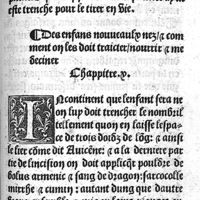 estre trenche pour le tirer en vie.
¶ Des enfans nouueaulx nez/⁊ com
ment on les doit traicter/nourrir ⁊ me
deciner
Chappitre.v.
INcontinent que lenfant sera ne
on luy doit trencher le nombril
tellement quon en laisse lespa
ce de trois doitz de lõg: ⁊ ainsi
le lier cõme dit Auicẽne: ⁊ a la derniere par
tie de lincision on doit applicq̃r pouldre de
bolus armenic ⁊ sang de dragon: sarcocolle
mirrhe ⁊ cumin: autant dung que dautre